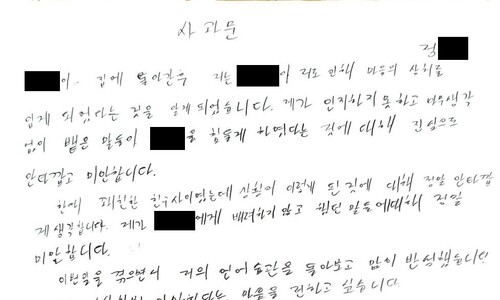 사과문
정
이 집에 돌아간후 저는 이 저로 인해 마음의 상처를
입게 되었다는 것을 알게되었습니다. 제가 인지하지 못하고 아무생각
없이 뱉은 말들이 을 힘들게 하였다는 것에 대해 진심으로
안타깝고 미안합니다.
한때 친한 친구사이였는데 상황이 이렇게 된것에 대해 정말 안타깝
게생각합니다. 제가 에게 배려하지 않고 했던 말들에대해 정말
미안합니다.
이번일을 겪으면서 저의 언어습관을 돌아보고 많이 반성했습니다
마음을 전하고 싶습니다.